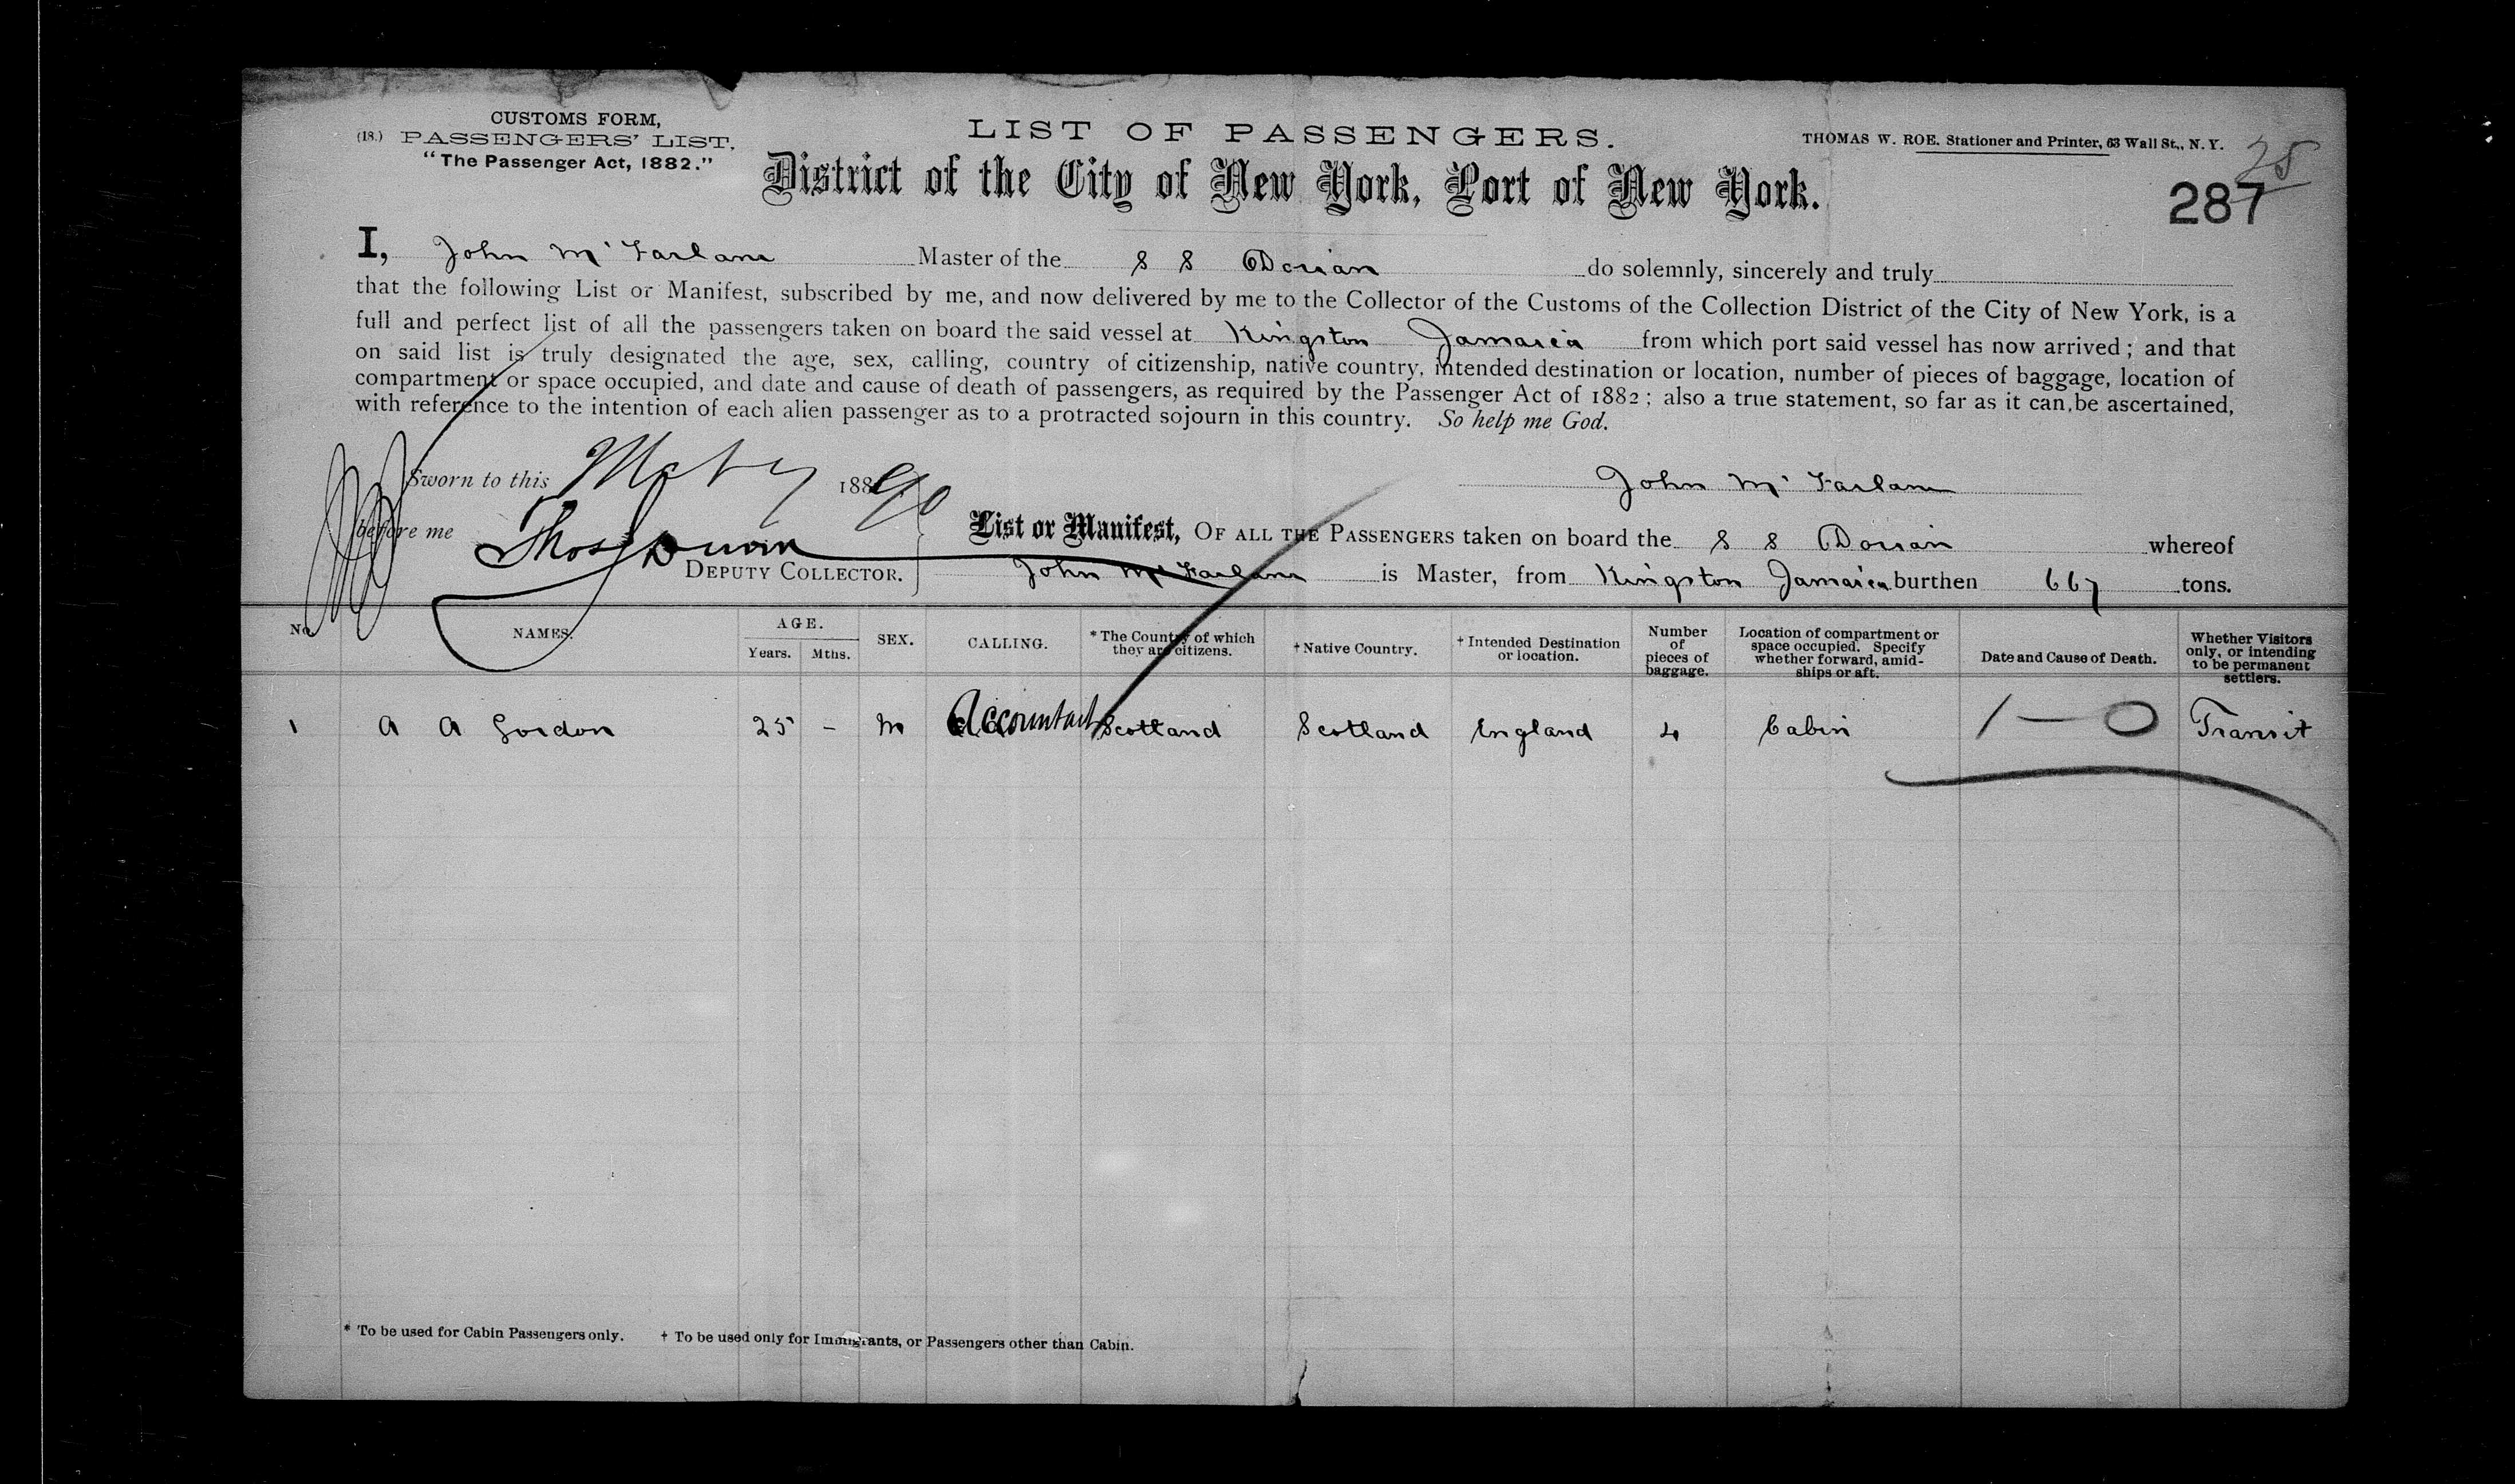 CUSTOMS FORM,
(18.) PASSENGERS' LIST.
"The Passenger Act, 1882."
LIST OF PASSENGERS.
THOMAS W. ROE. Stationer and Printer, 63 Wall St., N. Y.
25
District of the City of New York, Port of New York.
287
I, John Mc Farlane Master of the S S Dorian do solemnly, sincerely and truly
that the following List or Manifest, subscribed by me, and now delivered by me to the Collector of the Customs of the Collection District of the City of New York, is a
full and perfect list of all the passengers taken on board the said vessel at Kingston Jamaica from which port said vessel has now arrived; and that
on said list is truly designated the age, sex, calling, country of citizenship, native country, intended destination or location, number of pieces of baggage, location of
compartment or space occupied, and date and cause of death of passengers, as required by the Passenger Act of 1882; also a true statement, so far as it can be ascertained,
with reference to the intention of each alien passenger as to a protracted sojourn in this country. So help me God.
Sworn to this 188 90
John Mc Farlane
before me
List or Manifest, OF ALL THE PASSENGERS taken on board the S S Dorian whereof
DEPUTY COLLECTOR.
John Mc Farlane is Master, from Kingston Jamaica burthen 667 tons.
No. NAMES. AGE. Years. Mths. SEX. CALLING. * The Country of which they are citizens. † Native Country. † Intended Destination or location. Number of pieces of baggage. Location of compartment or space occupied. Specify whether forward, amid-ships or aft. Date and Cause of Death. Whether Visitors only, or intending to be permanent settlers.
1 A A Gordon 25 - M Accountant Scotland Scotland England 4 Cabin 1 — 0 Transit
* To be used for Cabin Passengers only. † To be used only for Immigrants, or Passengers other than Cabin.